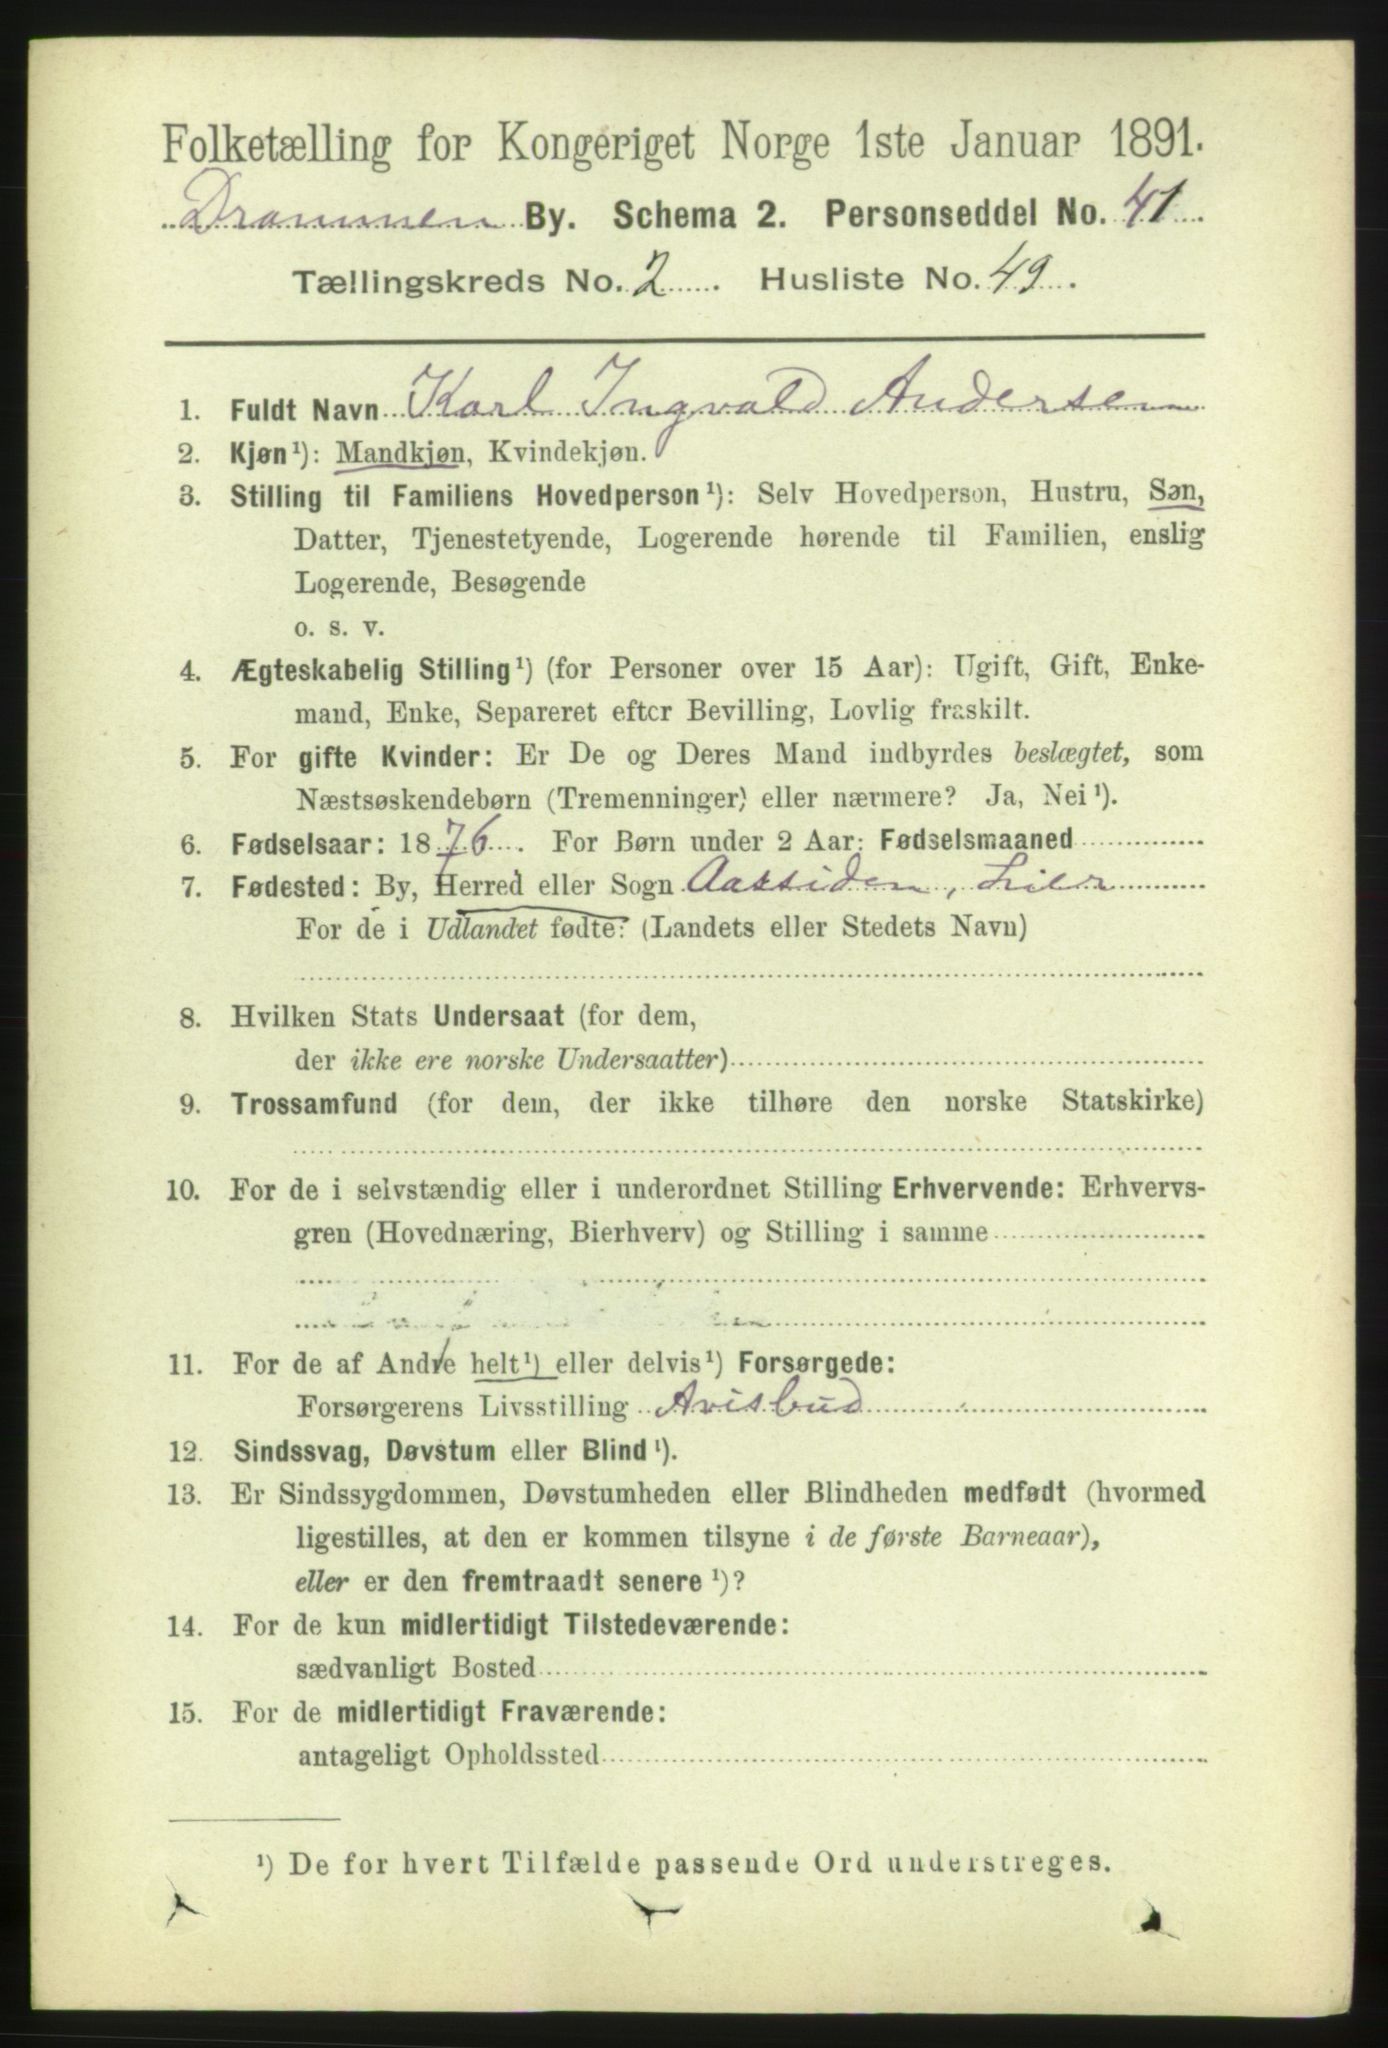 Folketælling for Kongeriget Norge 1ste Januar 1891.
Drammen By. Schema 2. Personseddel No. 41
Tællingskreds No. 2. Husliste No. 49.
1. Fuldt Navn Karl Ingvald Andersen
2. Kjøn¹): Mandkjøn, Kvindekjøn.
3. Stilling til Familiens Hovedperson¹): Selv Hovedperson, Hustru, Søn,
Datter, Tjenestetyende, Logerende hørende til Familien, enslig
Logerende, Besøgende
o. s. v.
4. Ægteskabelig Stilling¹) (for Personer over 15 Aar): Ugift, Gift, Enke-
mand, Enke, Separeret efter Bevilling, Lovlig fraskilt.
5. For gifte Kvinder: Er De og Deres Mand indbyrdes beslægtet, som
Næstsøskendebørn (Tremenninger) eller nærmere? Ja, Nei¹).
6. Fødselsaar: 1876. For Børn under 2 Aar: Fødselsmaaned
7. Fødested: By, Herred eller Sogn Aassiden, Lier
For de i Udlandet fødte: (Landets eller Stedets Navn)
8. Hvilken Stats Undersaat (for dem,
der ikke ere norske Undersaatter)
9. Trossamfund (for dem, der ikke tilhøre den norske Statskirke)
10. For de i selvstændig eller i underordnet Stilling Erhvervende: Erhvervs-
gren (Hovednæring, Bierhverv) og Stilling i samme
11. For de af Andre helt¹) eller delvis¹) Forsørgede:
Forsørgerens Livsstilling Avisbud
12. Sindssvag, Døvstum eller Blind¹).
13. Er Sindssygdommen, Døvstumheden eller Blindheden medfødt (hvormed
ligestilles, at den er kommen tilsyne i de første Barneaar),
eller er den fremtraadt senere¹)?
14. For de kun midlertidigt Tilstedeværende:
sædvanligt Bosted
15. For de midlertidigt Fraværende:
antageligt Opholdssted
¹) De for hvert Tilfælde passende Ord understreges.